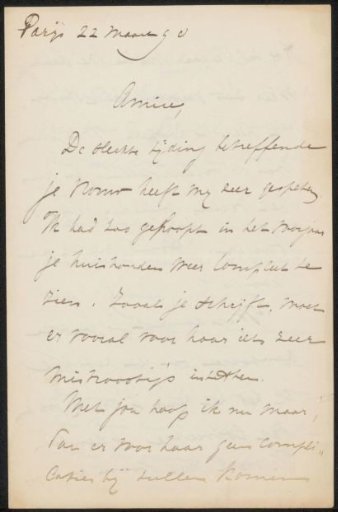 Parijs 22 Maart 90
Amice,
De slechte tijding betreffende
je Vrouw heeft my zeer gespeten
Ik had zoo gehoopt in het voorjaar
je huishouden weer compleet te
zien. Zooals je schrijft, moet
er vooral voor haar iets zeer
mistroostigs in zitten.
Met jou hoop ik nu maar,
dat er voor haar geen compli-
caties bij zullen komen